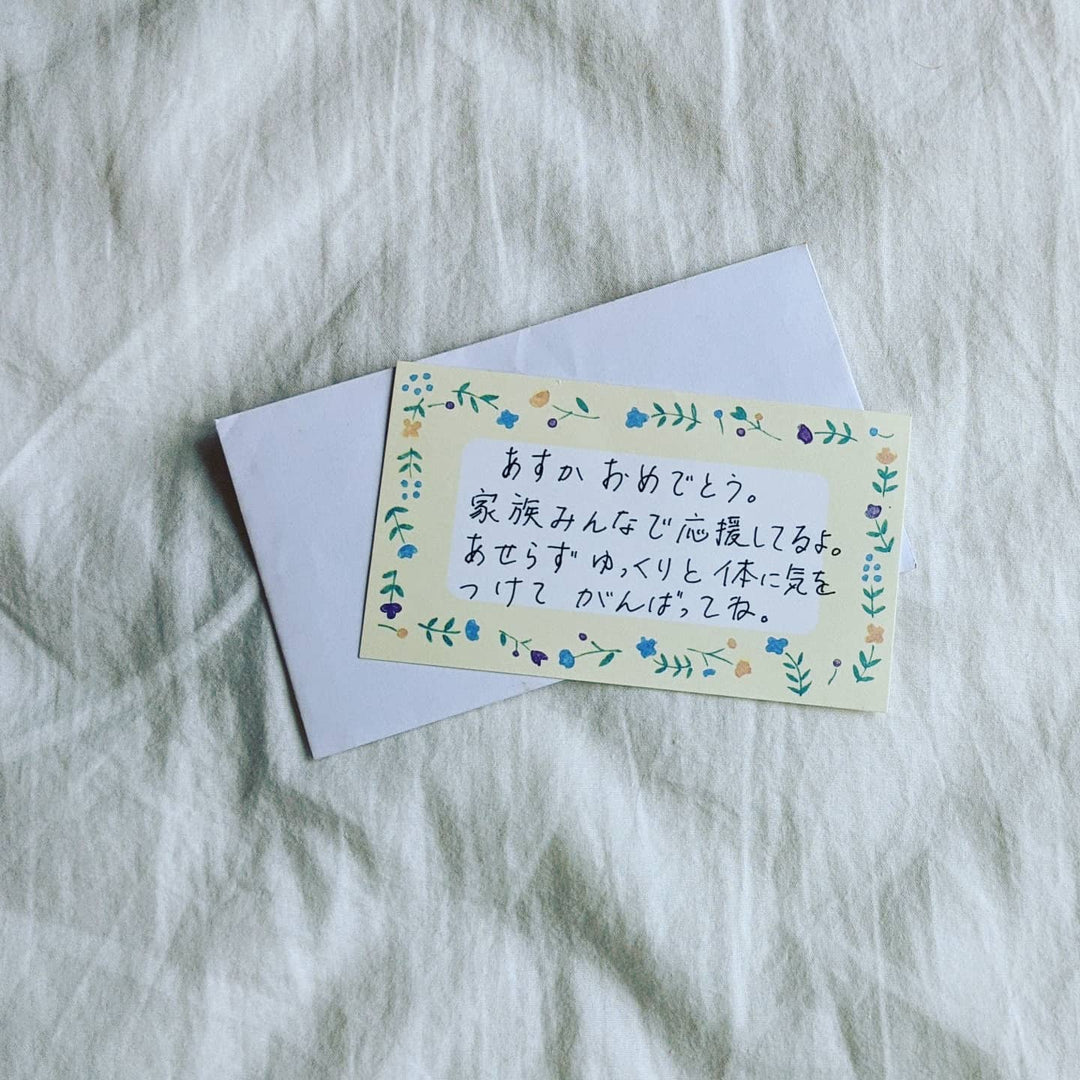 あすか おめでとう。
家族みんなで応援してるよ。
あせらず ゆっくりと 体に気を
つけて がんばってね。